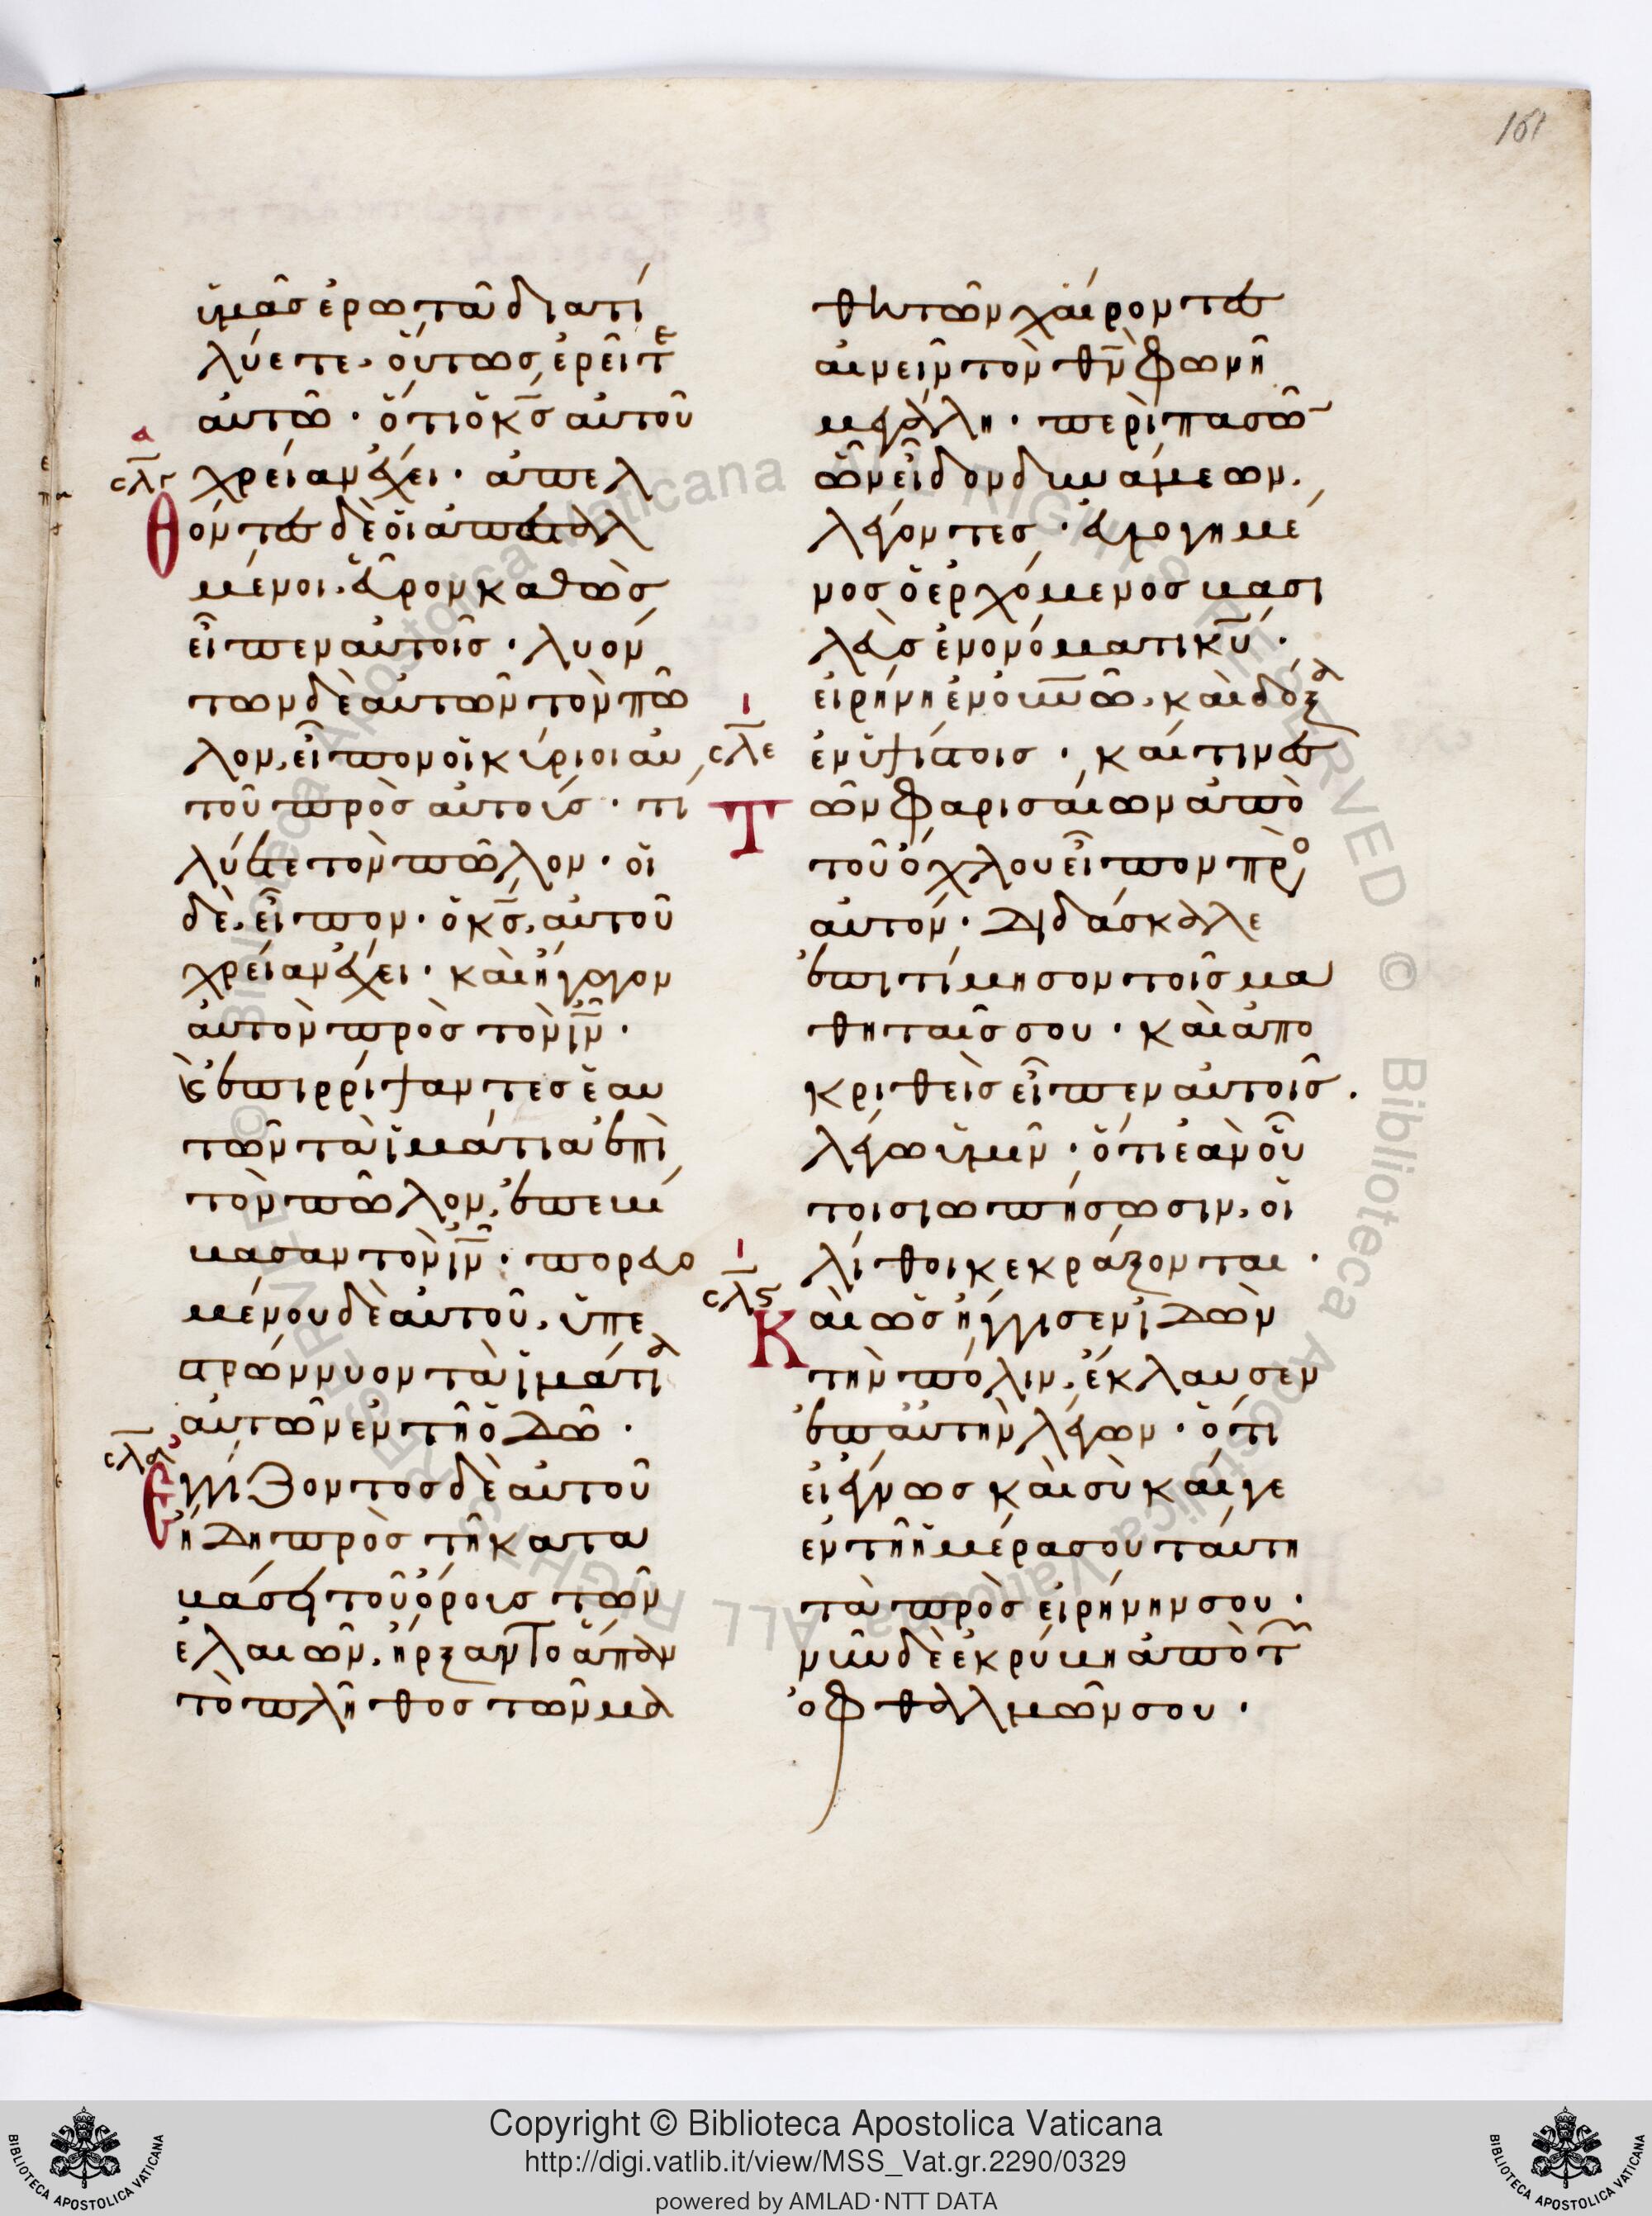 161
ὑμᾶς ἐρωτᾶ διατί
λύετε· οὕτως ἐρεῖτε
αὐτῶ · ὅτι ὁ κς αὐτοῦ
α
σλγ
χρείαν ἔχει · ἀπελ
θόντες δὲ οἱ ἀπεσταλ
μένοι. εὗρον καθὼς
εἶπεν αὐτοῖς · λυόν
των δὲ αὐτῶν τὸν πῶ
λον, εἶπον οἱ κύριοι αὐ
τοῦ πρὸς αὐτούς · τί
λύετε τὸν πῶλον · οἱ
δὲ, εἶπον · ὁ κς, αὐτοῦ
χρείαν ἔχει · καὶ ἤγαγον
αὐτὸν πρὸς τὸν ιν ·
καὶ ἐπιρρίψαντες ἑαυ
τῶν τὰ ἱμάτια ἐπὶ
τὸν πῶλον, ἐπεβί
βασαν τὸν ιν · πορευο
μένου δὲ αὐτοῦ, ὑπε
στρώννυον τὰ ἱμάτια
αὐτῶν ἐν τῆ ὁδῶ ·
σλδ
Ἐγγίζοντος δὲ αὐτοῦ
ἤδη πρὸς τῆ κατα
βάσει τοῦ ὄρους τῶν
ἐλαιῶν, ἤρξαντο ἅπαν
τὸ πλῆθος τῶν μα
θητῶν χαίροντες
αἰνεῖν τὸν θν φωνῆ
μεγάλη · περὶ πασῶ
ὧν εἶδον δυνάμεων,
λέγοντες · εὐλογημέ
νος ὁ ἐρχόμενος βασι
λεὺς ἐν ονόματι κυ ·
εἰρήνη ἐν οὐνῶ, καὶ δόξα
ι
σλε
ἐν ὑψίστοις · καί τινες
Τῶν φαρισαίων ἀπὸ
τοῦ ὄχλου εἶπον πρὸ
αὐτον · Διδάσκαλε
ἐπιτίμησον τοῖς μα
θηταῖς σου · καὶ ἀπο
κριθεὶς εἶπεν αὐτοῖς.
λέγω ὑμῖν · ὅτι ἐὰν οὗ
τοι σιωπήσωσιν, οἱ
λίθοι κεκράξονται ·
ι
σλς
Καὶ ὡς ἤγγισεν ἰδὼν
τὴν πόλιν, ἔκλαυσεν
ἐπ αὐτὴν λέγων · ὅτι
εἰ έγνως καὶ σὺ καί γε
ἐν τῆ ἡμέρα σου ταύτη
τὰ πρὸς εἰρήνην σου ·
νῦν δὲ ἐκρύβη ἀπὸ τ
ὀφθαλμῶν σου ·
Copyright © Biblioteca Apostolica Vaticana
http://digi.vatlib.it/view/MSS_Vat.gr.2290/0329
powered by AMLAD·NTT DATA
BIBLIOTECA APOSTOLICA VATICANA
BIBLIOTECA APOSTOLICA VATICANA